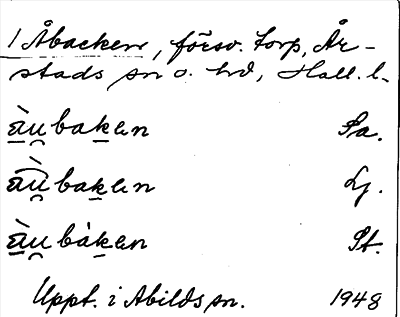 1 Åbacken, försv. torp, År-
stads sn o. hd, Hall. l.
a̱̖u̯baḵen Sa.
a̱̖u̯baḵen Lj.
a̱̖u̯bàḵen St.
Uppt. i Abilds sn. 1948